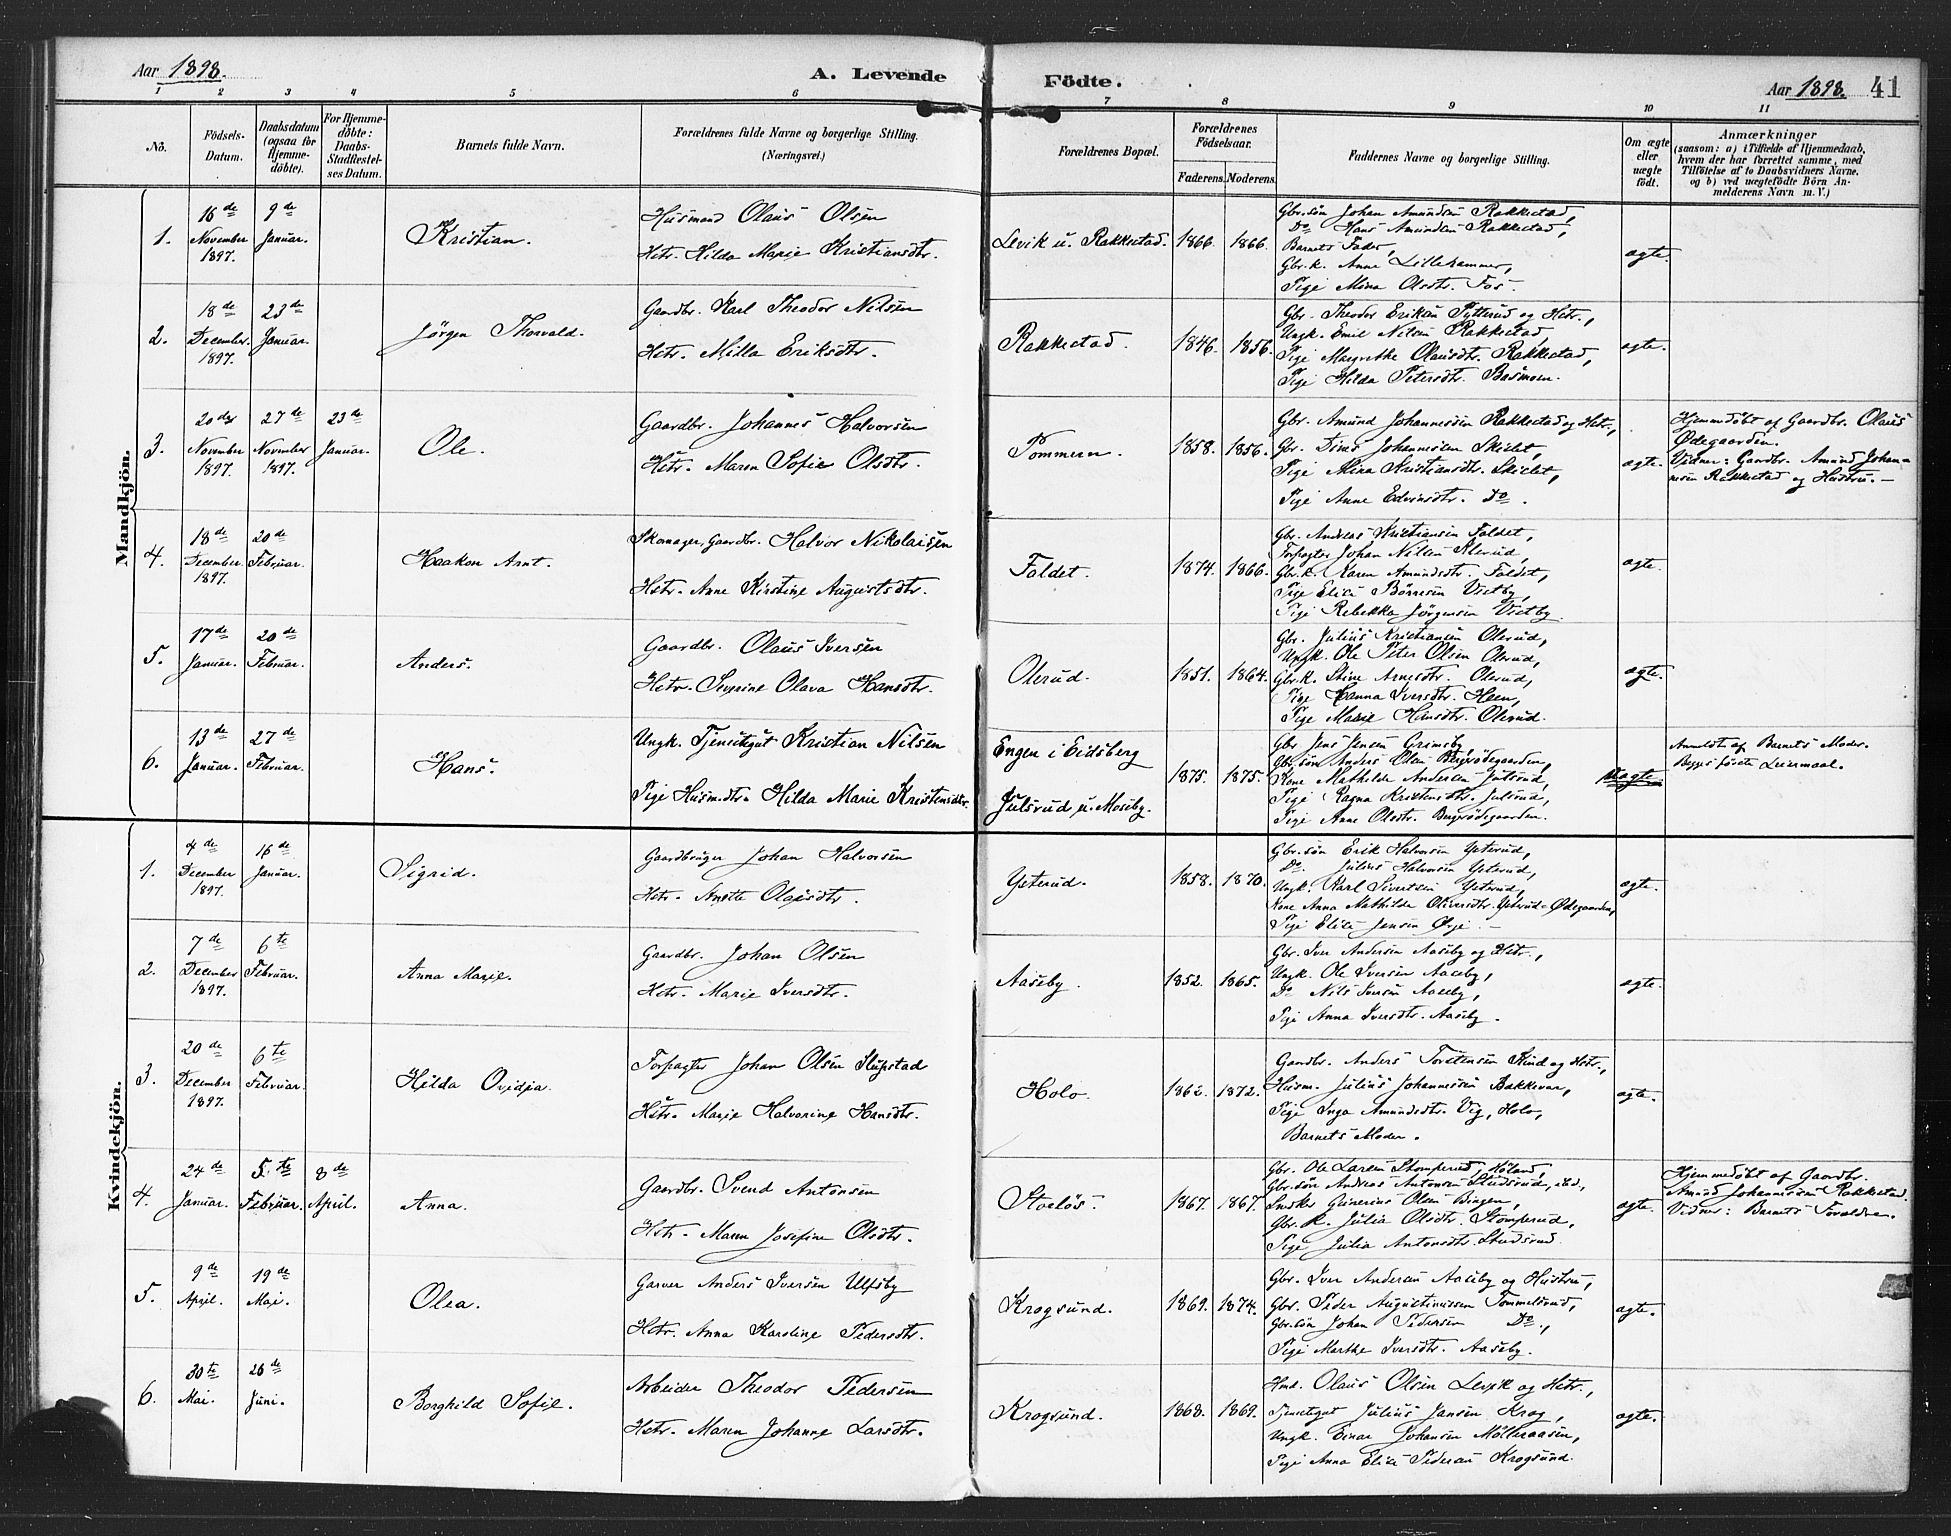 Aar 1898.
A. Levende Födte.
Aar 1898. 41
1 2 3 4 5 6 7 8 9 10 11
No.
Födsels-Datum.
Daabsdatum (ogsaa for Hjemme-döbte).
For Hjemme-döbte: Daabs-Stadfæstel-ses Datum.
Barnets fulde Navn.
Forældrenes fulde Navne og borgerlige Stilling.
(Næringsvei.)
Forældrenes Bopæl.
Forældrenes Födselsaar.
Faderens. Moderens.
Faddernes Navne og borgerlige Stilling.
Om ægte eller uægte født.
Anmærkninger
(saasom: a) i Tilfælde af Hjemmedaab,
hvem der har forrettet samme, med
Tilföielse af to Daabsvidners Navne.
og b) ved uægtefödte Börn An-
melderens Navn m. V.)
Mandkjön.
1. 16de November 1897. 9de Januar. Kristian.
Husmand Olaus Olsen
Hstr. Hilda Marie Kristiansdtr.
Levik u. Rakkestad. 1866. 1866.
Gbr.sön Johan Amundsen Rakkestad,
Do Hans Amundsen Rakkestad,
Barnets Fader,
Gbr.k. Anne Lillehammer,
Pige Mina Olsdtr. Fos.
ægte.
2. 18de December 1897. 23de Januar. Jörgen Thorvald.
Gaardbr. Karl Theodor Nilsen
Hstr. Milla Eriksdtr.
Rakkestad. 1846. 1856.
Gbr. Theodor Eriksen Tytterud og Hstr.,
Ungk. Emil Nilsen Rakkestad,
Pige Margrethe Olausdtr. Rakkestad,
Pige Hilda Petersdtr. Basmoen.
ægte.
3. 20de November 1897. 27de November 1897. 23de Januar. Ole.
Gaardbr. Johannes Halvorsen
Hstr. Maren Sofie Olsdtr.
Pommern. 1858. 1856.
Gbr. Amund Johannessen Rakkestad og Hstr.,
Gbr. Johannessen
Pige Mina Kristiansdtr.
Pige Anne Edvinsdtr. Do.
ægte.
Hjemmedöbt af Gaardbr. Olaus
Ødegaarden.
Vidner: Gaardbr. Amund Johan-
nesen Rakkestad og Hustru.
4. 18de December 1897. 20de Februar. Haakon Arnt.
Skomager, Gaardbr. Halvor Nikolaisen
Hstr. Anne Kirstine Augustsdtr.
Faldet. 1874. 1866.
Gbr. Andreas Kristiansen Faldet,
Forpagter Johan Nilsen
Gbr.k. Karen Amundsdtr. Faldet,
Pige Elise Börresen Vestby,
Pige Rebekka Jörgensen Vestby.
ægte.
5. 17de Januar. 20de Februar. Anders.
Gaardbr. Olaus Iversen
Hstr. Severine Olava Hansdtr.
Olerud. 1851. 1864.
Gbr. Julius Kristiansen Olerud,
Ungk. Ole Peter Olsen Olerud,
Gbr.k. Stine Arnesdtr. Olerud,
Pige Hanna Iversdtr. Heen,
Pige Marie Hansdtr. Olerud.
ægte.
6. 13de Januar. 27de Februar. Hans.
Ungk. Tjenestegut Kristian Nilsen
Pige Husm.dtr. Hilda Marie Kristensdtr.
Engen i Eidsberg
Julsrud u. Moseby.
1875. 1875.
Gbr. Jens Jensen Grimsby,
Gbr.sön Anders Olsen Bergsödegaarden,
Kone Mathilde Andersen Julsrud,
Pige Ragna Kristensdtr. Julsrud,
Pige Anne Olsdtr. Bergsödegaarden.
Uægte.
Anmeldt af Barnets Moder.
Begges förste Leiermaal.
Kvindekjön.
1. 4de December 1897. 16de Januar. Sigrid.
Gaardbruger Johan Halvorsen
Hstr. Anette Olausdtr.
Ysterud. 1858. 1870.
Gbr.sön Erik Halvorsen Ysterud,
Do Julius Halvorsen Ysterud,
Ungk. Karl Sivertsen Ysterud,
Kone Anna Mathilde Oliversdtr. Ysterud-Ødegaarden,
Pige Elise Jensen Ørje.
ægte.
2. 7de December 1897. 6te Februar. Anna Marie.
Gaardbr. Johan Olsen
Hstr. Marie Iversdtr.
Aaseby. 1852. 1865.
Gbr. Iver Andersen Aaseby og Hstr.,
Ungk. Ole Iversen Aaseby,
Do Nils Iversen Aaseby,
Pige Anna Iversdtr. Aaseby.
ægte.
3. 20de December 1897. 6te Februar. Hilda Ovidia.
Forpagter Johan Olsen
Hstr. Marie Halvorine Hansdtr.
Holo. 1862. 1872.
Gaardbr. Anders Torstensen og Hstr.,
Husm. Julius Johannessen Bakkevar,
Pige Inga Amundsdtr. Vig, Holo,
Barnets Moder.
ægte.
4. 24de Januar. 5te Februar. 8de April. Anna.
Gaardbr. Svend Antonsen
Hstr. Maren Josefine Olsdtr.
1867. 1867.
Gbr. Ole Larsen Stomperud, Höland,
Gbr.sön Andreas Antonsen Studsrud, ibd.,
Olsen Bingen,
Gbr.k. Julia Olsdtr. Stomperud,
Pige Julia Antonsdtr. Studsrud.
ægte.
Hjemmedöbt af Gaardbr.
Amund Johannessen Rakkestad.
Vidner: Barnets Foræeldre.
5. 9de April. 19de Mai. Olea.
Garver Anders Iversen Ulfsby
Hstr. Anna Karoline Pedersdtr.
Krogsund. 1869. 1874.
Gbr. Iver Andersen Aaseby og Hustru,
Gbr. Peder Augustinussen Tommelsrud,
Gbr.sön Johan Pedersen Do.,
Pige Marthe Iversdtr. Aaseby.
ægte.
6. 30te Mai. 26de Juni. Borghild Sofie.
Arbeider Theodor Pedersen
Hstr. Maren Johanne Larsdtr.
Krogsund. 1868. 1869.
Hmd. Olaus Olsen Levik og Hstr.,
Tjenestegut Julius Jansen Krog,
Ungk. Einar Johansen Mölleraasen,
Pige Anna Elise Pedersen Krogsund.
ægte.